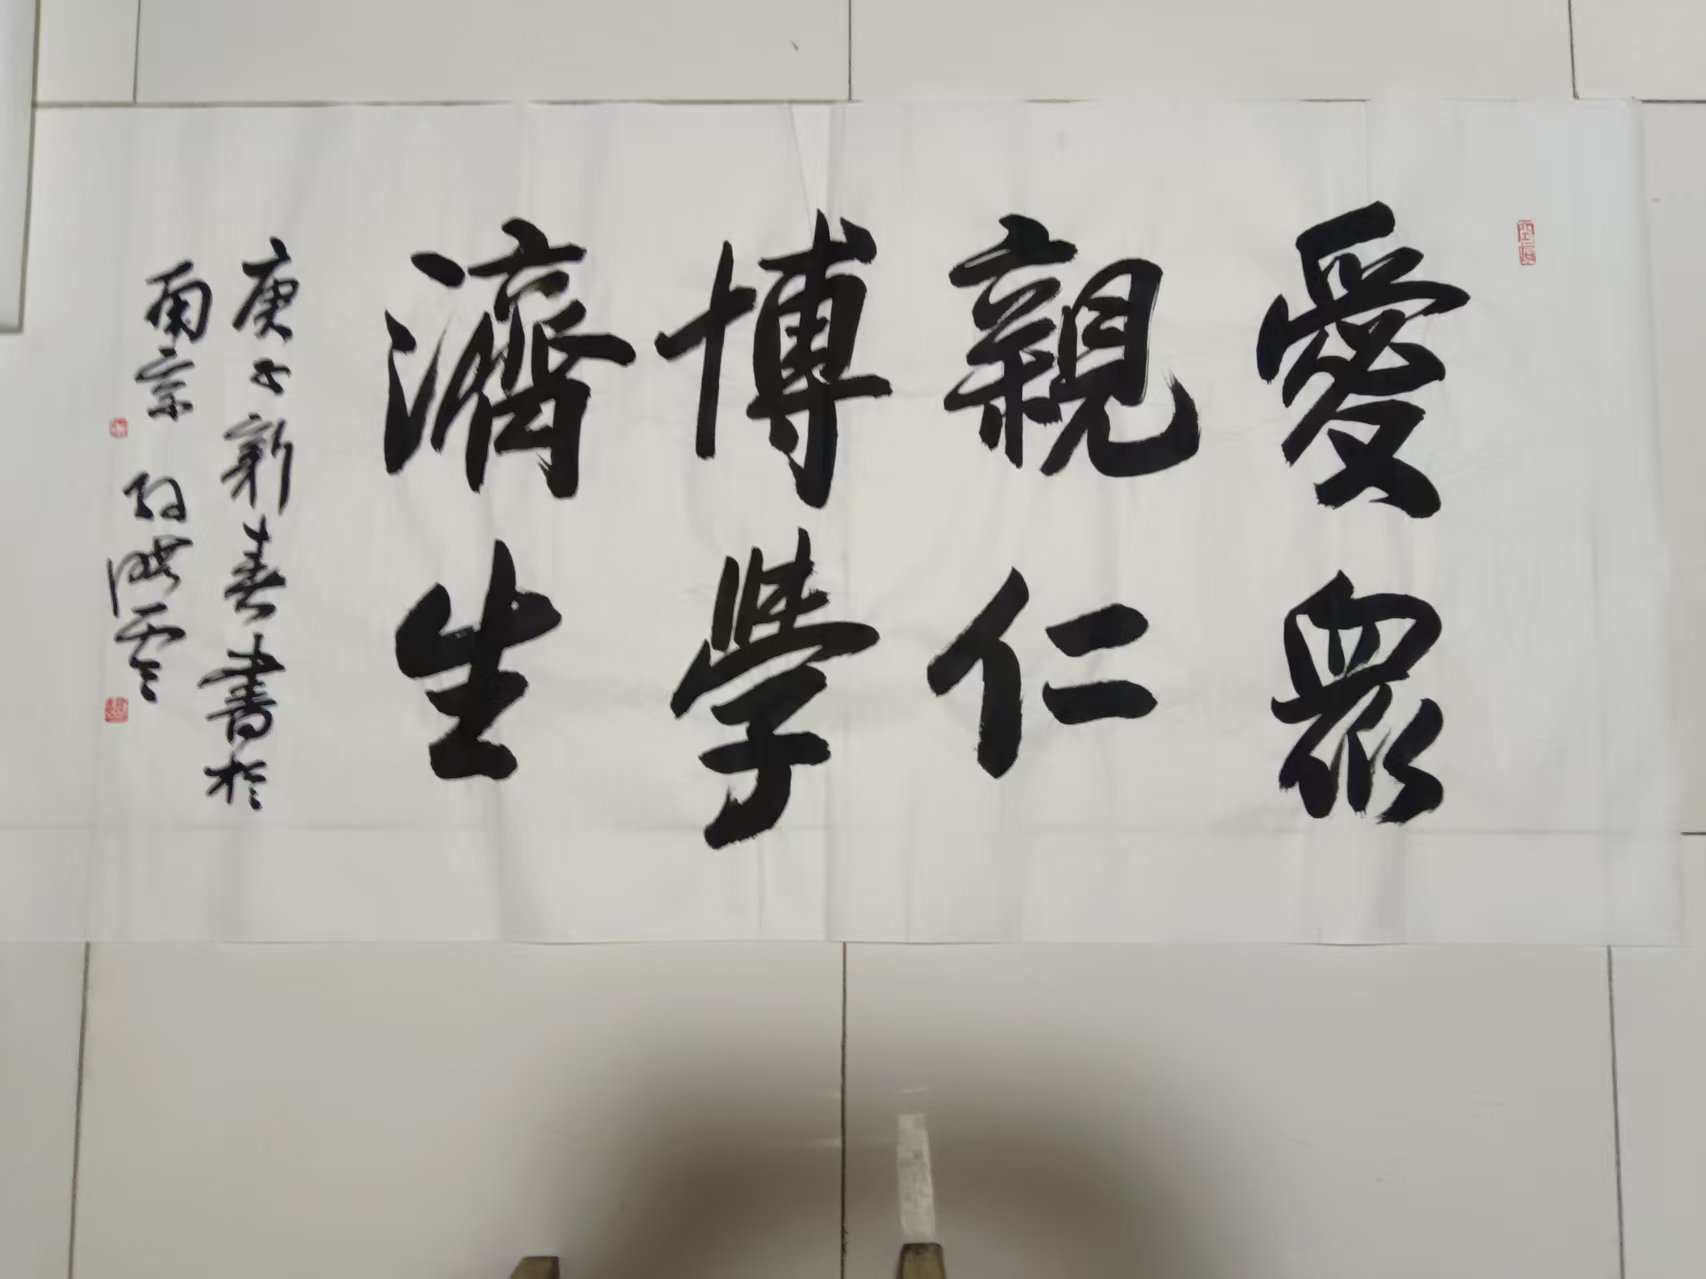 愛眾
親仁
博學
濟生
庚子新春書於
南京 孫曉雲